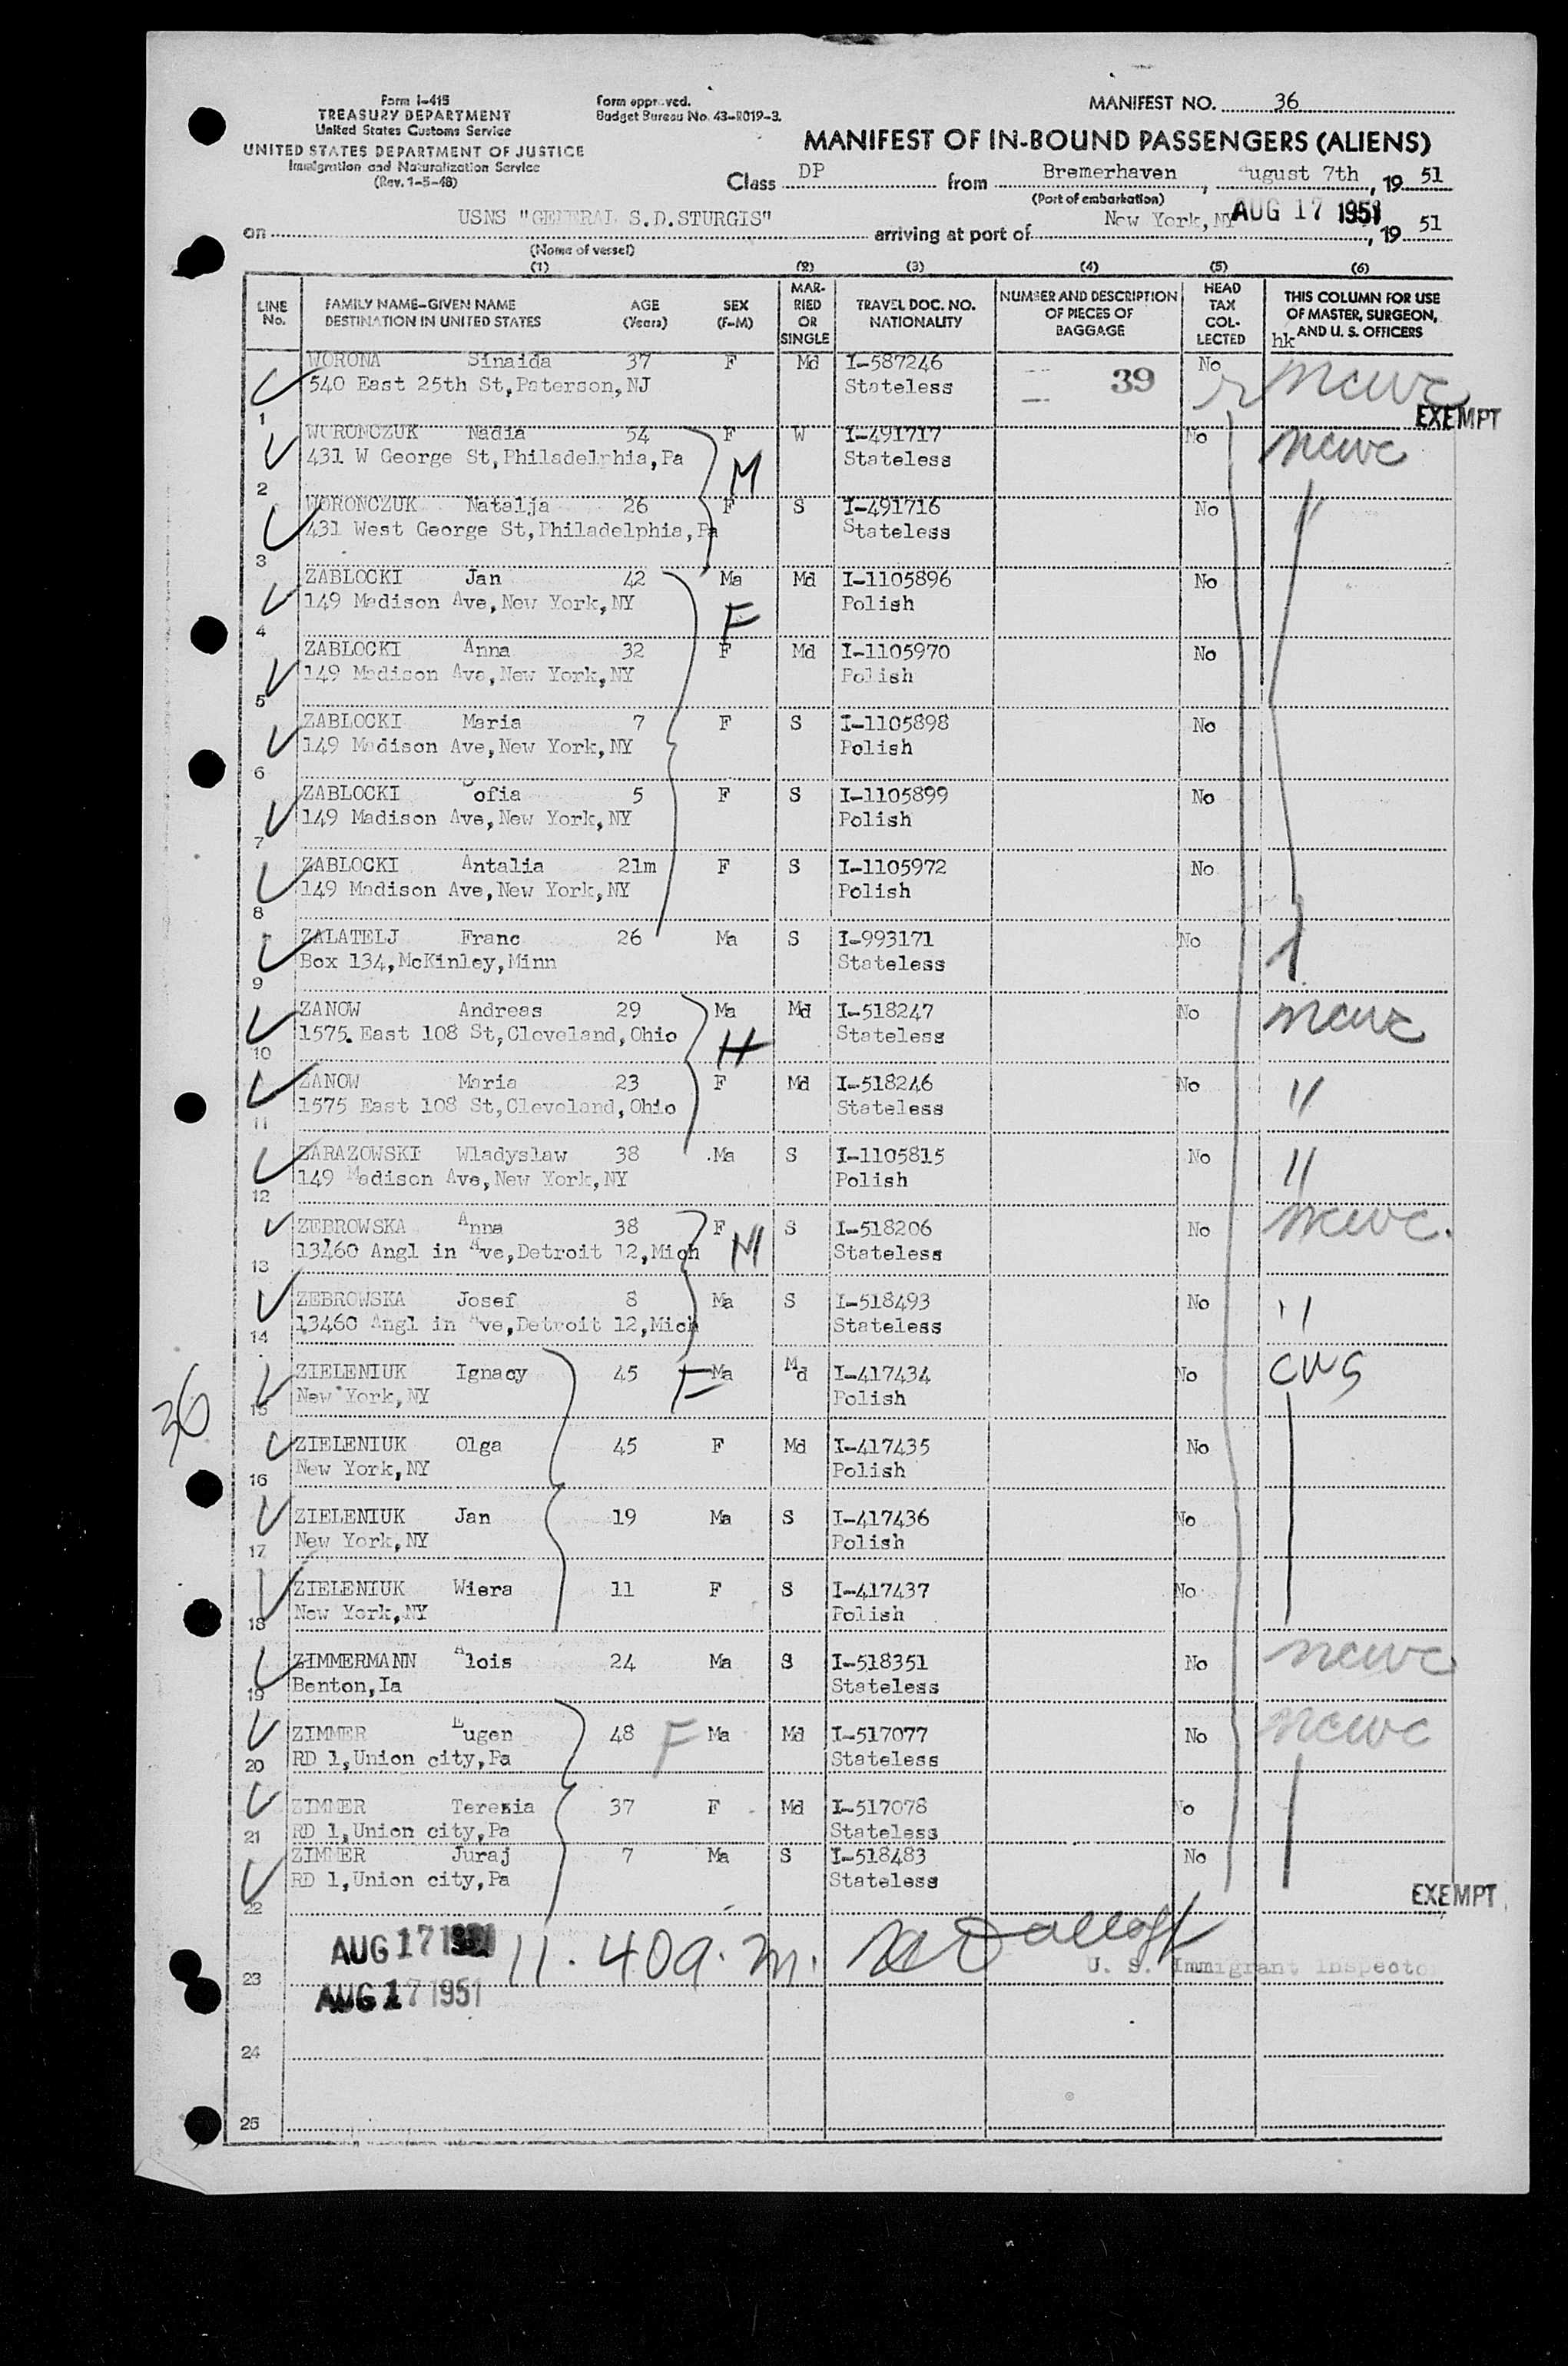 Form I-415
TREASURY DEPARTMENT
United States Customs Service
UNITED STATES DEPARTMENT OF JUSTICE
Immigration and Naturalization Service
(Rev. 1-5-48)
Form approved.
Budget Bureau No. 43-R019-3.
MANIFEST NO. 36
MANIFEST OF IN-BOUND PASSENGERS (ALIENS)
Class DP from Bremerhaven, August 7th, 19 51
(Port of embarkation)
on USNS "GENERAL S.D.STURGIS" arriving at port of New York, NY AUG 17 1951, 19 51
(Name of vessel)
(1) (2) (3) (4) (5) (6)
LINE No. FAMILY NAME-GIVEN NAME DESTINATION IN UNITED STATES AGE (Years) SEX (F-M) MARRIED OR SINGLE TRAVEL DOC. NO. NATIONALITY NUMBER AND DESCRIPTION OF PIECES OF BAGGAGE HEAD TAX COLLECTED THIS COLUMN FOR USE OF MASTER, SURGEON, AND U. S. OFFICERS
hk
WORONA Sinaida 37 F Md I-587246 39 No ncwc
1 540 East 25th St,Paterson,NJ Stateless
EXEMPT
WORONCZUK Nadia 54 F W I-491717 No ncwc
2 431 W George St,Philadelphia,Pa M Stateless
WORONCZUK Natalja 26 F S I-491716 No "
3 431 West George St,Philadelphia,Pa Stateless
ZABLOCKI Jan 42 Ma Md I-1105896 No
4 149 Madison Ave,New York,NY F Polish
ZABLOCKI Anna 32 F Md I-1105970 No
5 149 Madison Ave,New York,NY Polish
ZABLOCKI Maria 7 F S I-1105898 No
6 149 Madison Ave,New York,NY Polish
ZABLOCKI Sofia 5 F S I-1105899 No
7 149 Madison Ave,New York,NY Polish
ZABLOCKI Antalia 21m F S I-1105972 No
8 149 Madison Ave,New York,NY Polish
ZALATELJ Franc 26 Ma S I-993171 No
9 Box 134,McKinley,Minn Stateless
ZANOW Andreas 29 Ma Md I-518247 No ncwc
10 1575. East 108 St,Cleveland,Ohio H Stateless
ZANOW Maria 23 F Md I-518246 No "
11 1575 East 108 St,Cleveland,Ohio Stateless
ZARAZOWSKI Wladyslaw 38 .Ma S I-1105815 No "
12 149 Madison Ave,New York,NY Polish
ZEBROWSKA Anna 38 F S I-518206 No ncwc.
13 13460 Angl in Ave,Detroit 12,Mich M Stateless
ZEBROWSKA Josef 8 Ma S I-518493 No "
14 13460 Angl in Ave,Detroit 12,Mich Stateless
ZIELENIUK Ignacy 45 F Ma Md I-417434 No CWS
15 New York,NY Polish
36
ZIELENIUK Olga 45 F Md I-417435 No
16 New York,NY Polish
ZIELENIUK Jan 19 Ma S I-417436 No
17 New York,NY Polish
ZIELENIUK Wiera 11 F S I-417437 No
18 New York,NY Polish
ZIMMERMANN Alois 24 Ma S I-518351 No ncwc
19 Benton,Ia Stateless
ZIMMER Eugen 48 F Ma Md I-517077 No ncwc
20 RD 1,Union city,Pa Stateless
ZIMMER Teresia 37 F Md I-517078 No
21 RD 1,Union city,Pa Stateless
ZIMMER Juraj 7 Ma S I-518483 No
22 RD 1,Union city,Pa Stateless
EXEMPT
AUG 17 1951 11.40a.m.
23 U. S. Immigrant Inspector
AUG 17 1951
24
25